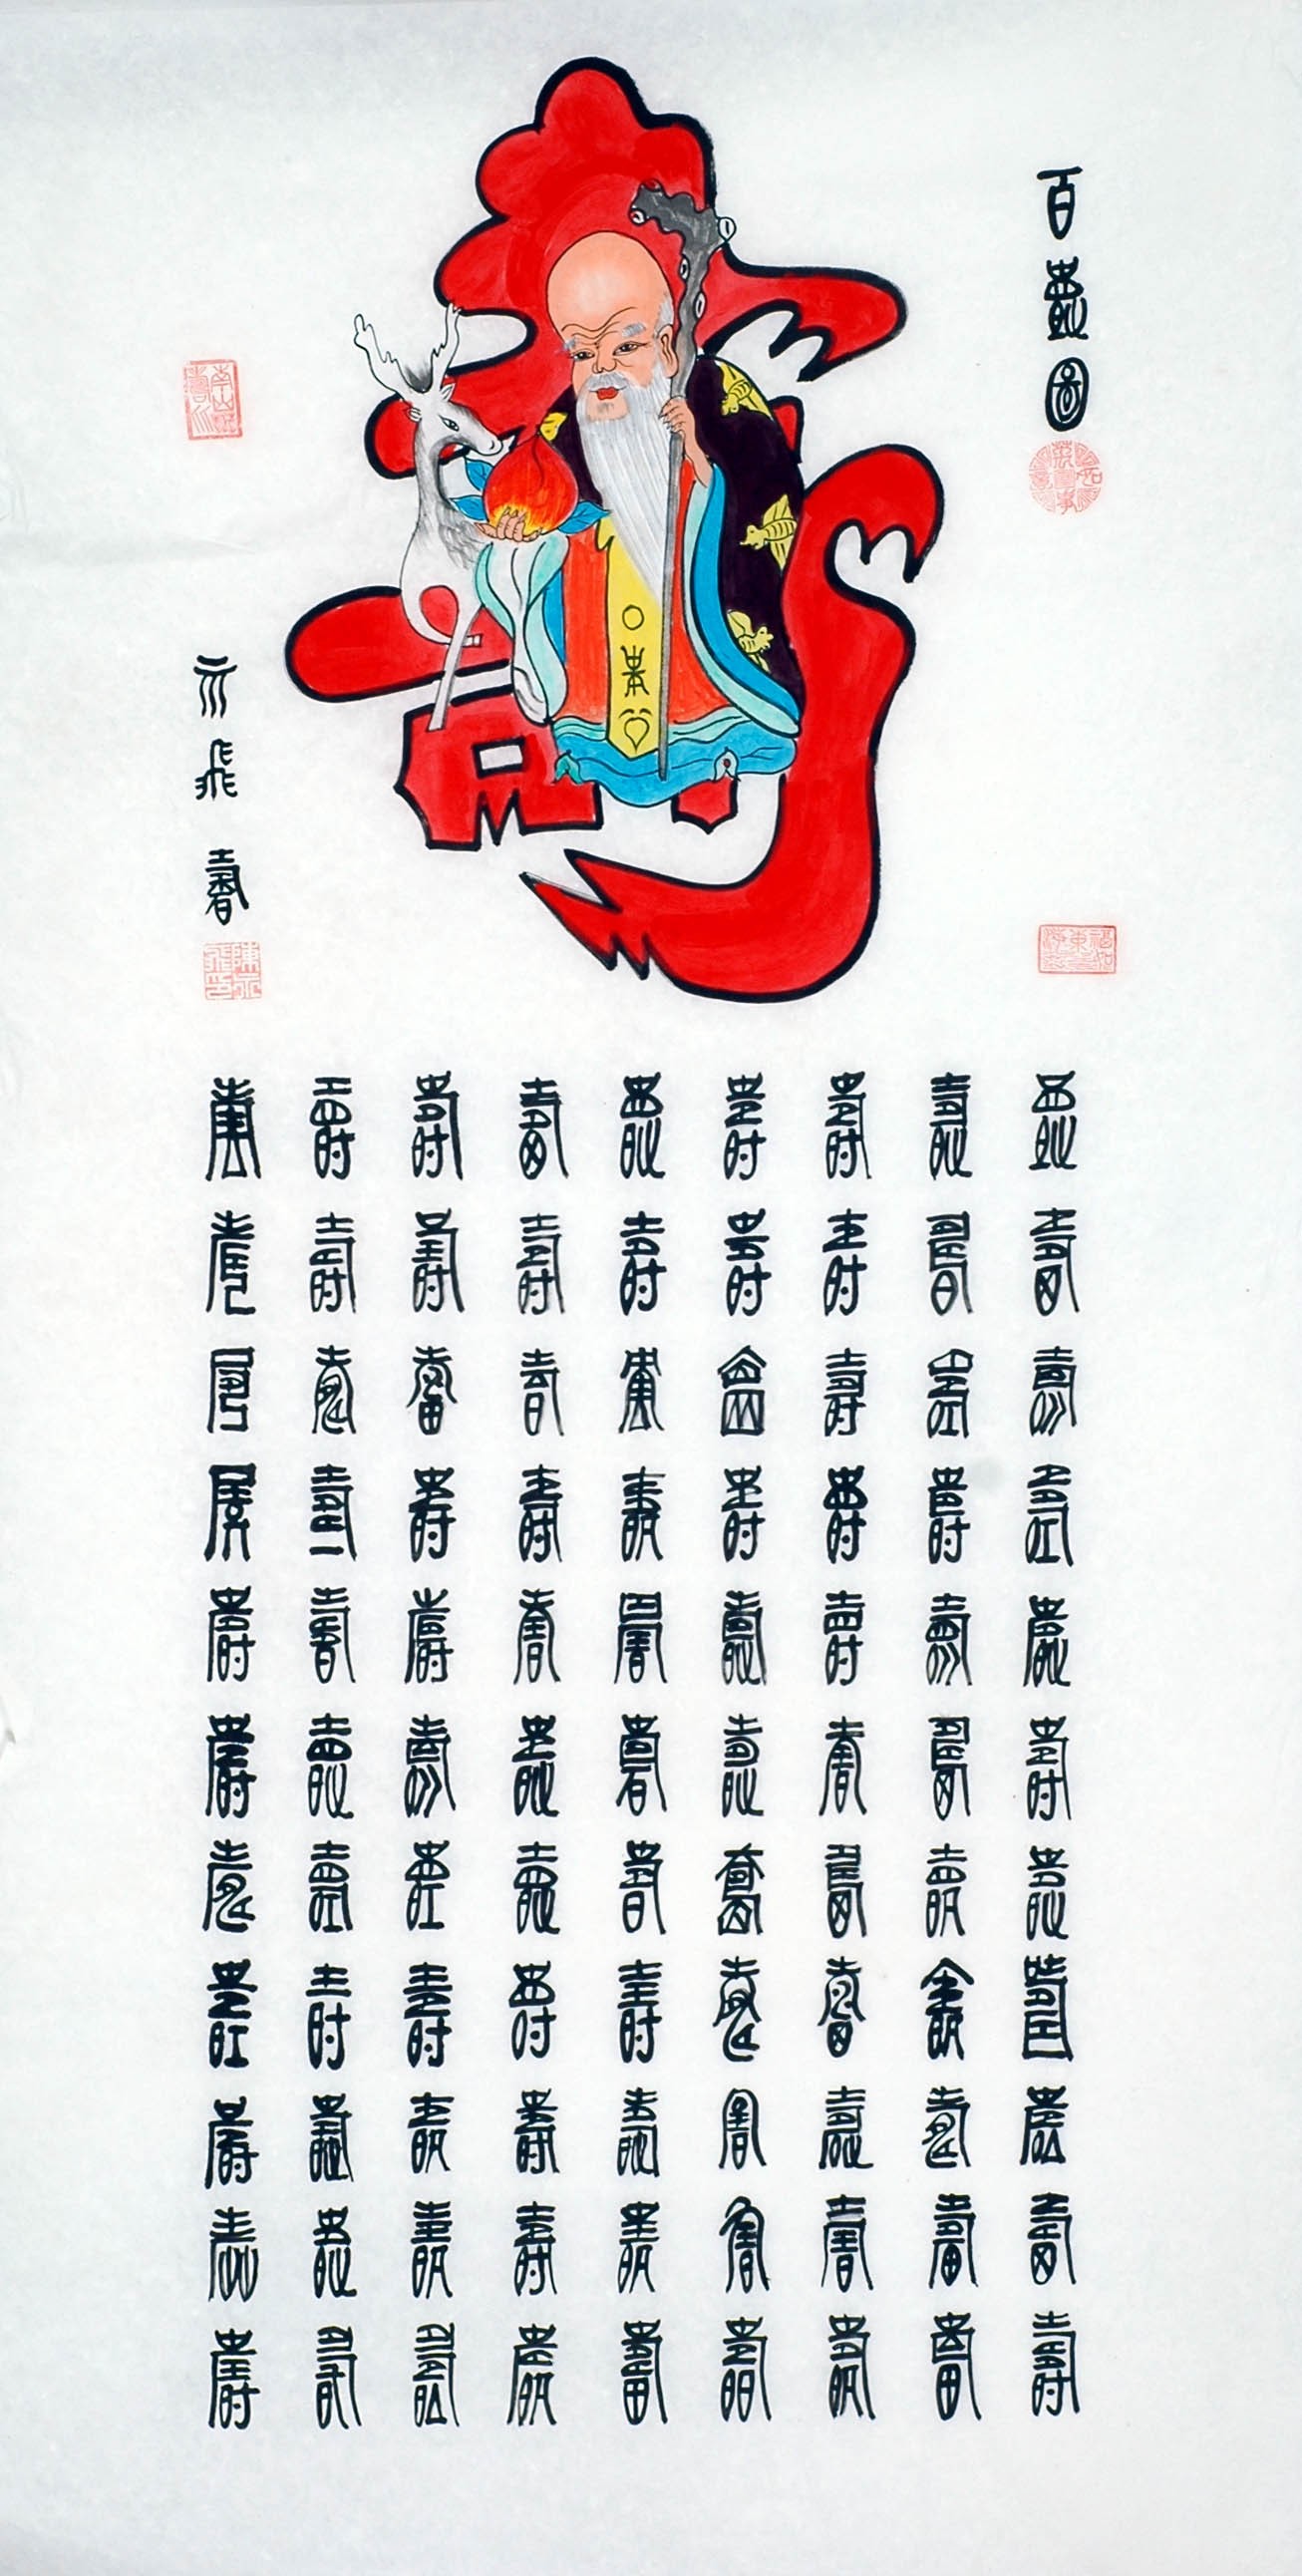 百壽圖
壽
壽壽壽壽壽壽壽壽壽壽壽
壽壽壽壽壽壽壽壽壽壽壽
壽壽壽壽壽壽壽壽壽壽壽
壽壽壽壽壽壽壽壽壽壽壽
壽壽壽壽壽壽壽壽壽壽壽
壽壽壽壽壽壽壽壽壽壽壽
壽壽壽壽壽壽壽壽壽壽壽
壽壽壽壽壽壽壽壽壽壽壽
壽壽壽壽壽壽壽壽壽壽壽